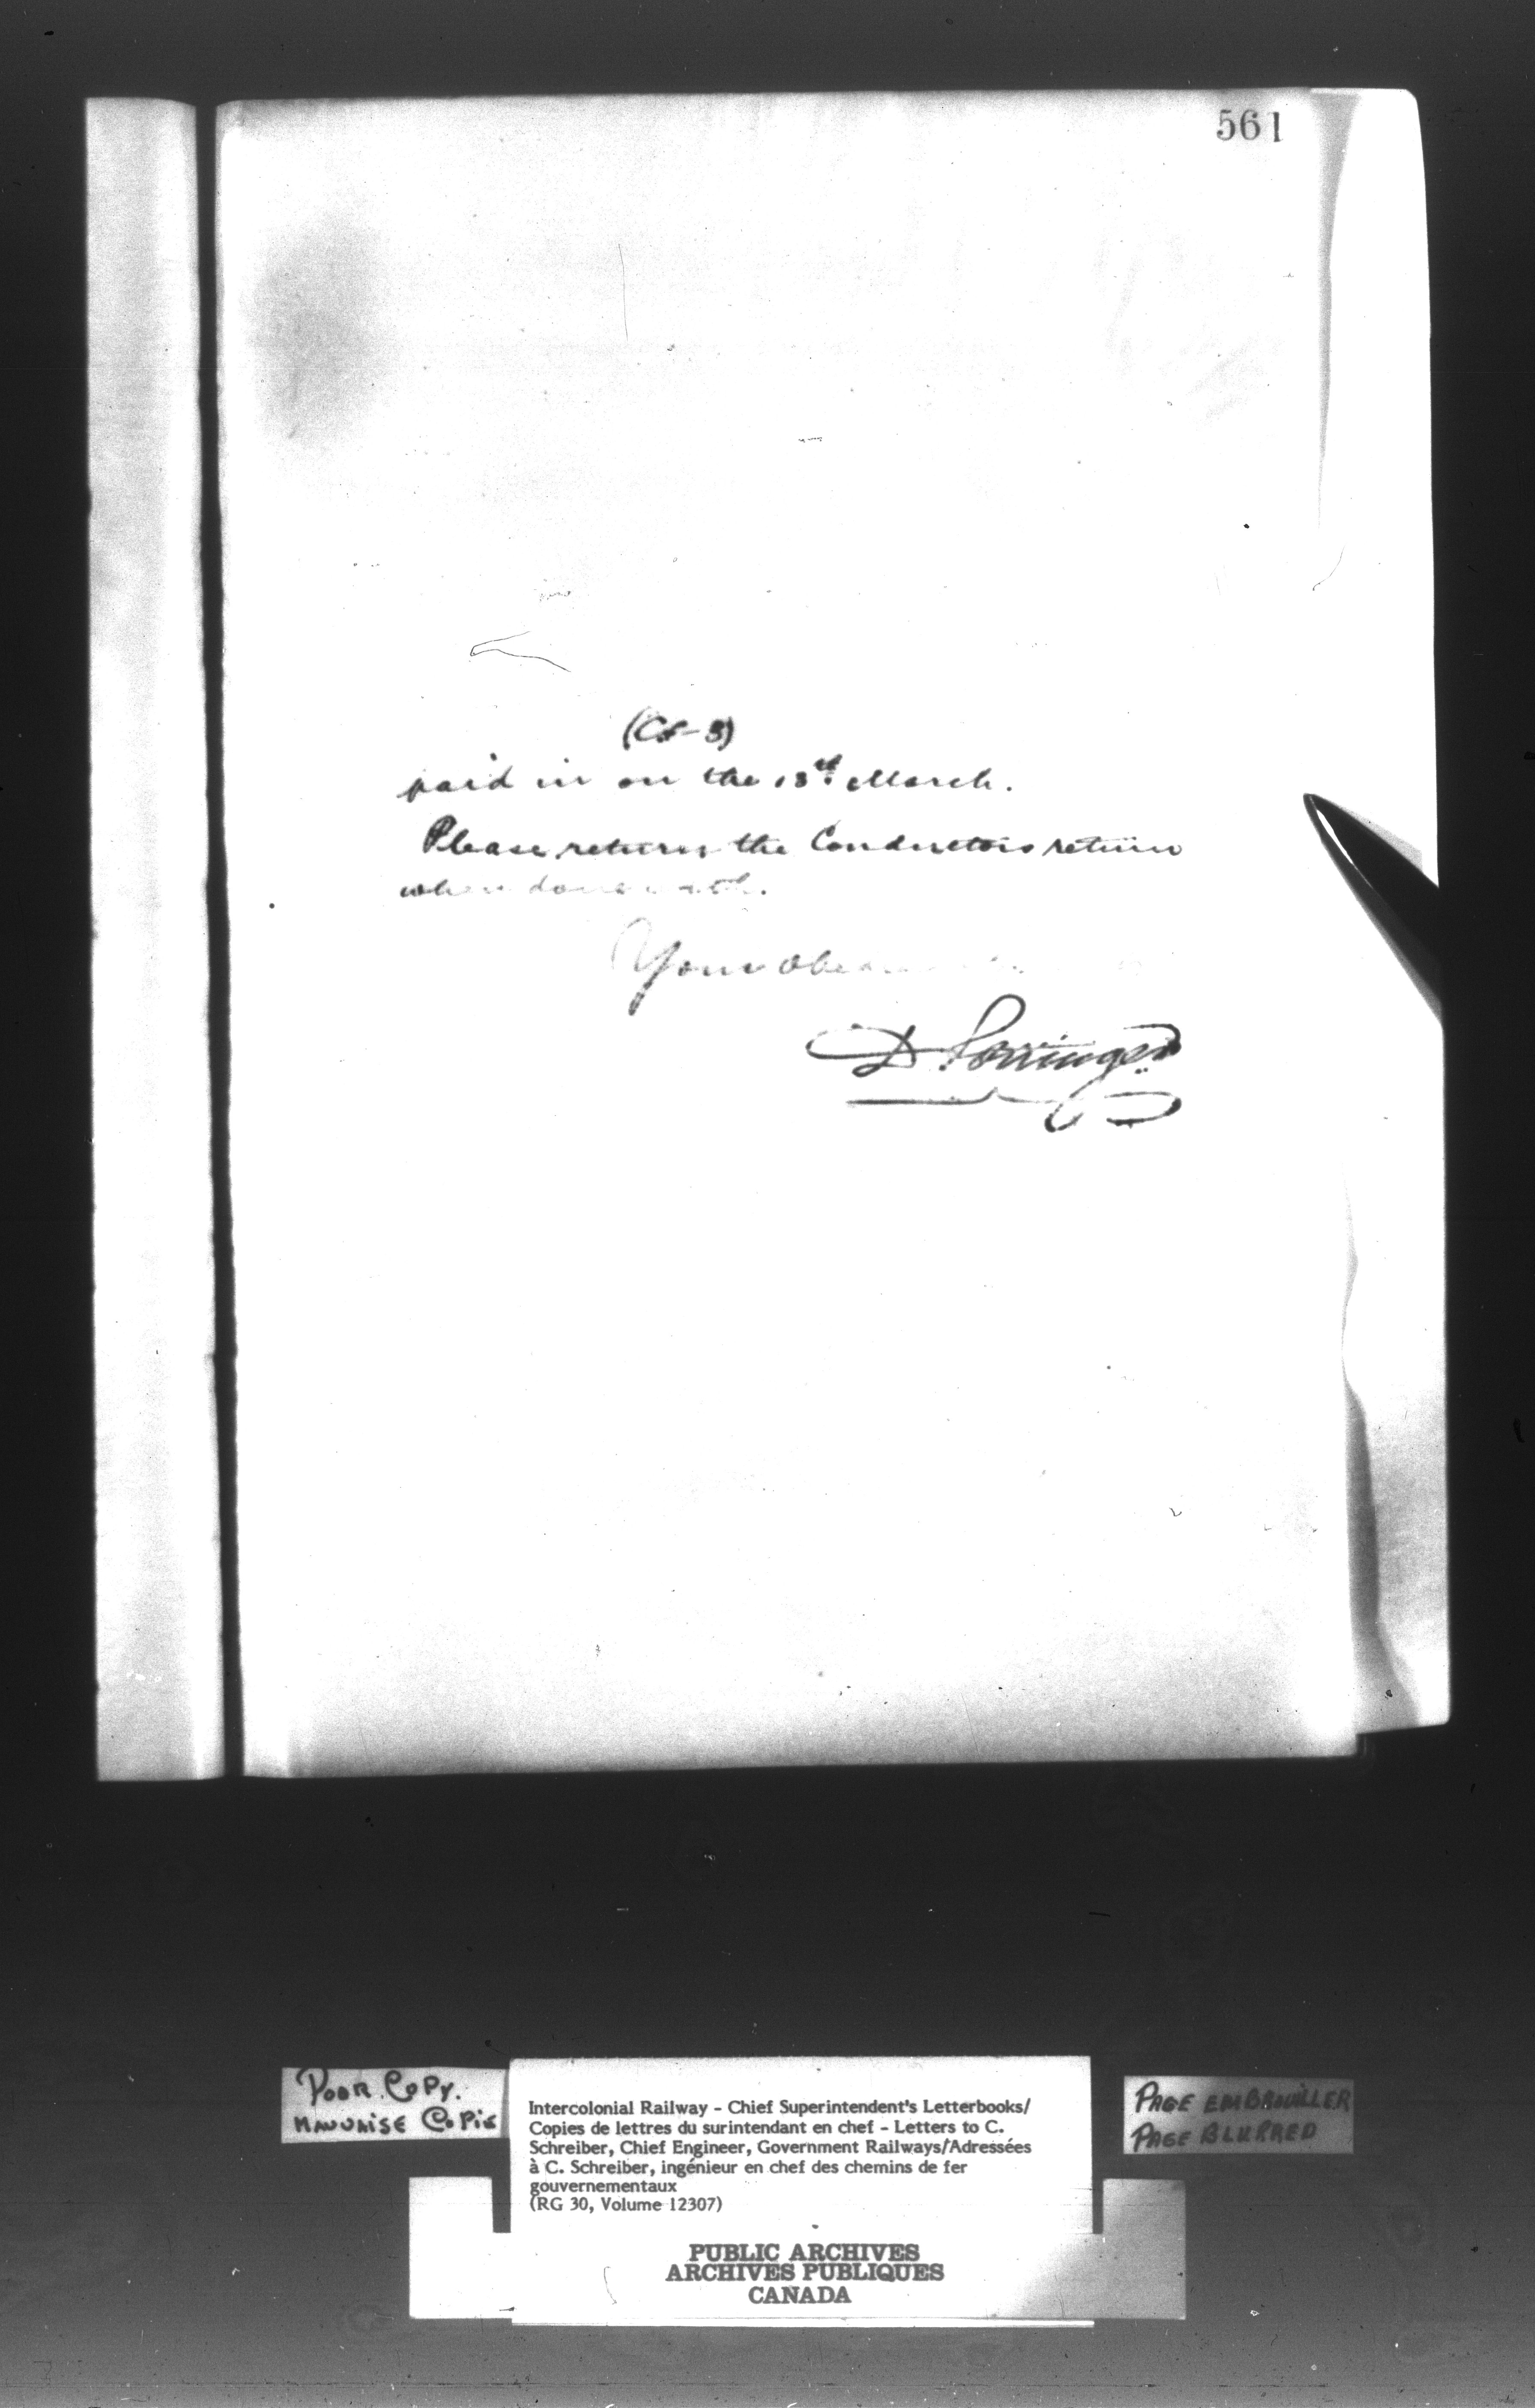 561
(CS-3)
paid in on the 13th March.
Please return the Conductors return
when done with.
Your obe
D Pottinger
POOR COPY.
MAUVAISE COPIE
Intercolonial Railway - Chief Superintendent's Letterbooks/
Copies de lettres du surintendant en chef - Letters to C.
Schreiber, Chief Engineer, Government Railways/Adressées
à C. Schreiber, ingénieur en chef des chemins de fer
gouvernementaux
(RG 30, Volume 12307)
PAGE EMBROUILLER
PAGE BLURRED
PUBLIC ARCHIVES
ARCHIVES PUBLIQUES
CANADA